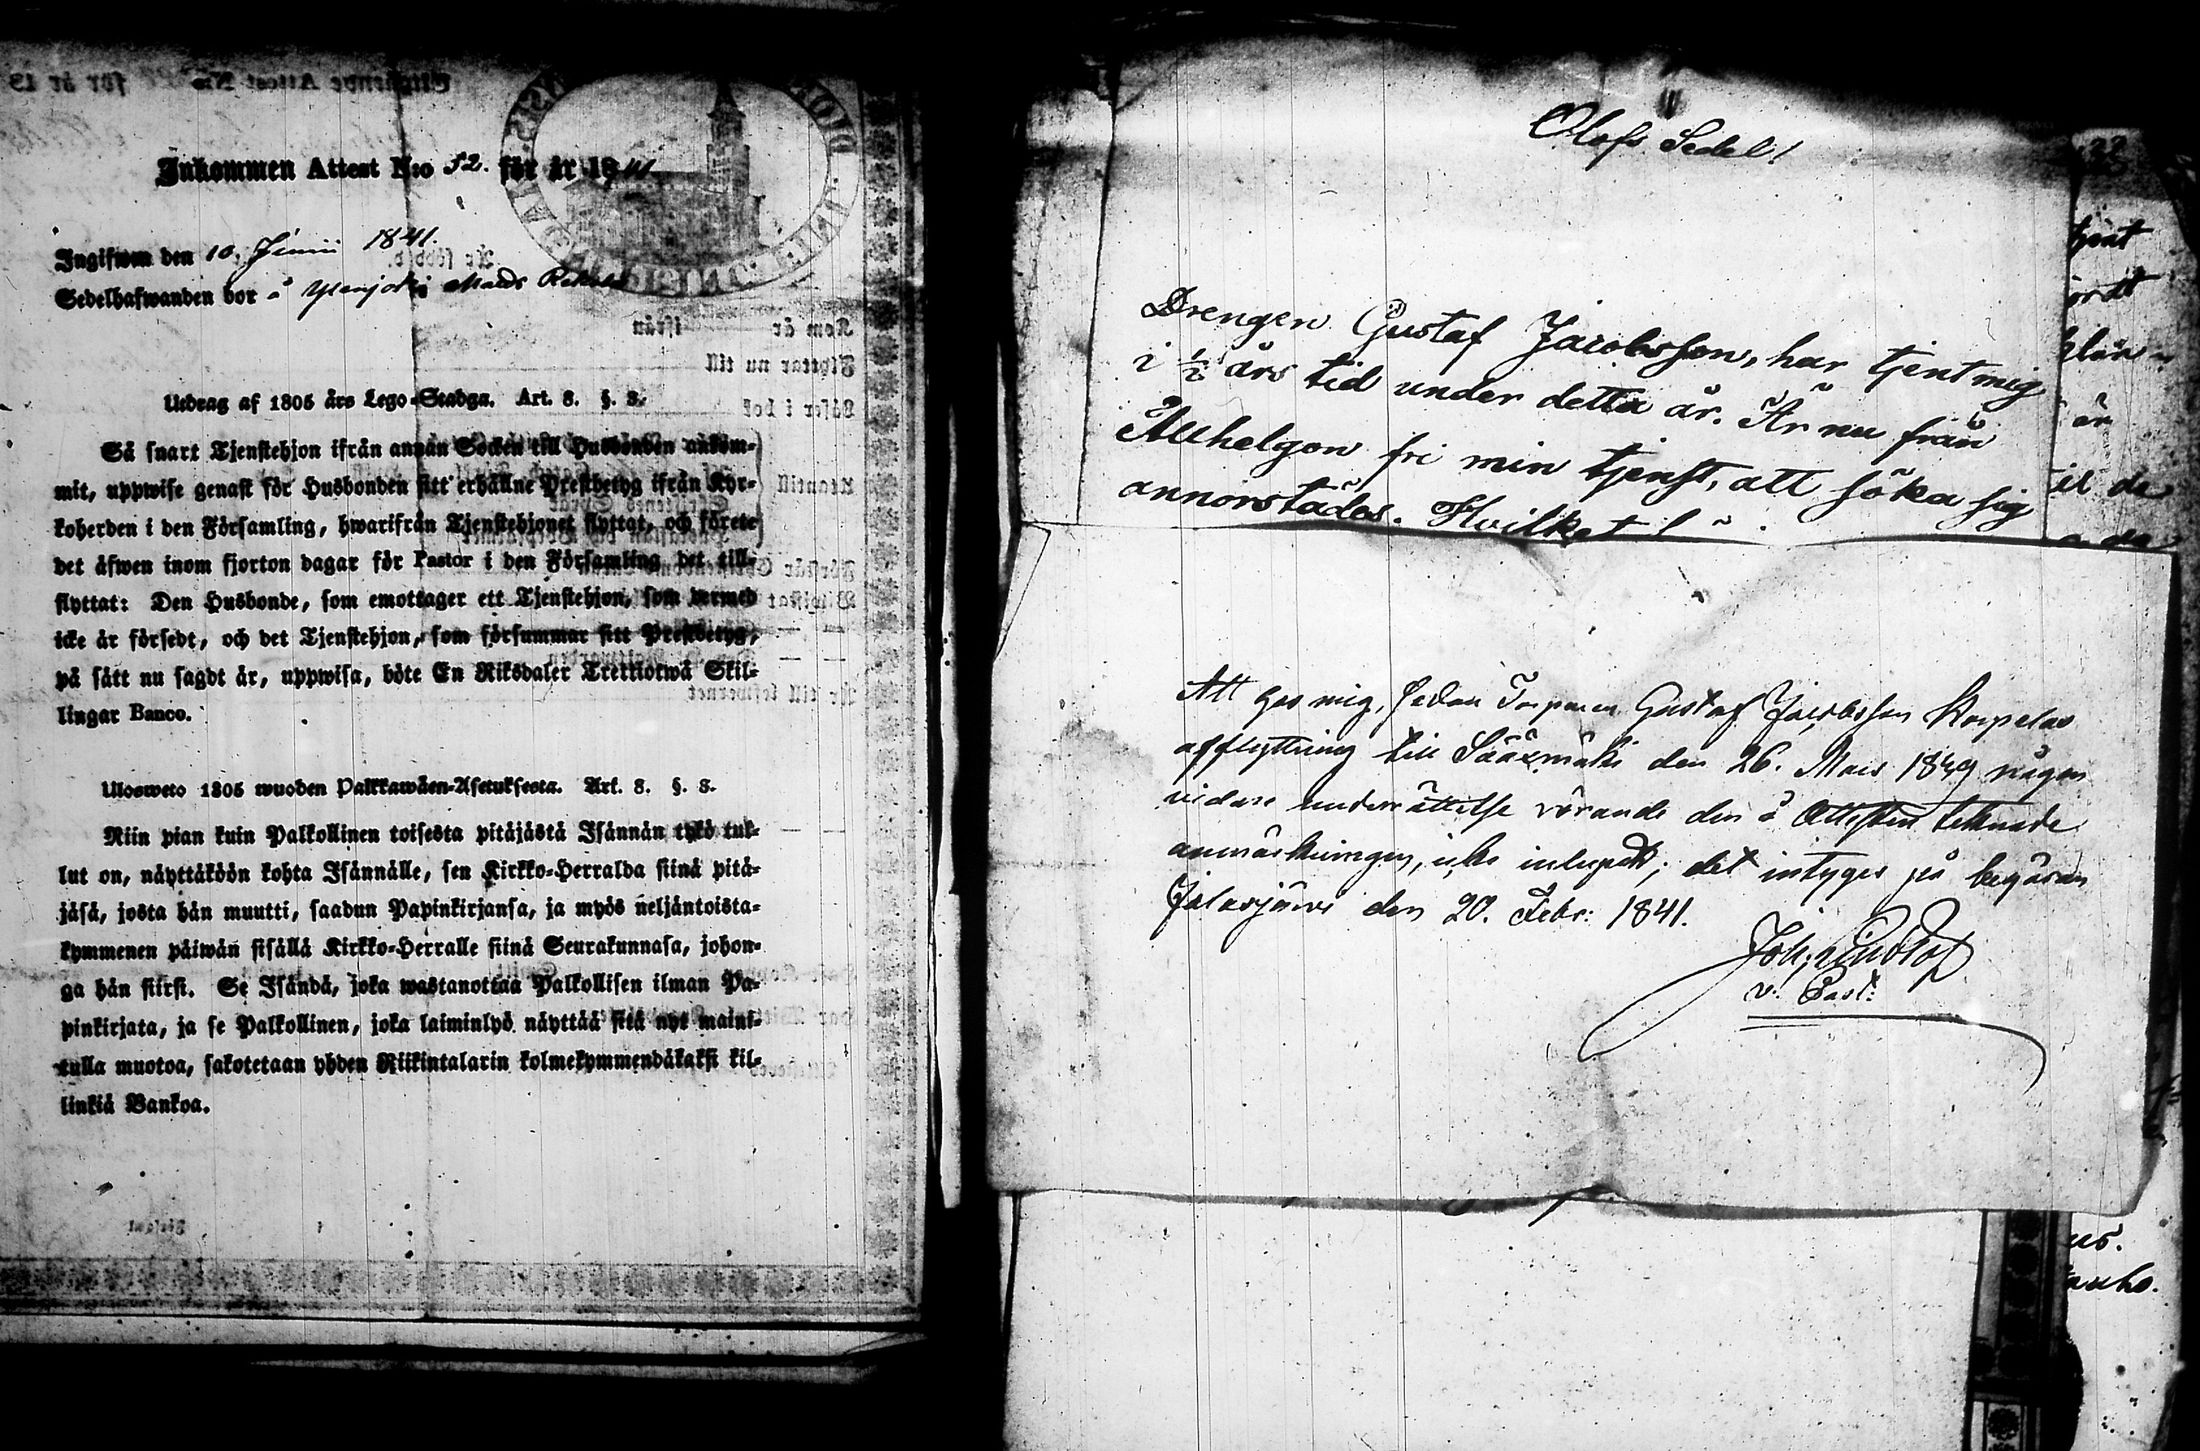 Inkommen Attest N:o 52. för år 1841
Ingifwen den 10. Junii 1841.
Sedelhafwanden bor å Ylenjoki Matts
Utdrag af 1805 års Lego-Stadga. Art. 8. §. 8.
Så snart Tjenstehjon ifrån annan Socken till Husbonden ankom-
mit, uppwise genast för Husbonden sitt erhållne Prestbetyg ifrån Kyr-
koherden i den Församling, hwarifrån Tjenstehjonet flyttat, och förete
det äfwen inom fjorton dagar för Pastor i den Församling det till-
flyttat: Den Husbonde, som emottager ett Tjenstehjon, som dermed
icke är försedt, och det Tjenstehjon, som försummar sitt Prestbetyg,
på sätt nu sagdt är, uppwisa, böte En Riksdaler Trettiotwå Skil-
lingar Banco.
Ulosweto 1805 wuoden Palkkawäen-Asetuksesta. Art. 8. §. 8.
Niin pian kuin Palkollinen toisesta pitäjästä Isännän tykö tul-
lut on, näyttäköön kohta Isännälle, sen Kirkko-Herralda siinä pitä-
jäsä, josta hän muutti, saadun Papinkirjansa, ja myös neljäntoista-
kymmenen päiwän sisällä Kirkko-Herralle siinä Seurakunnasa, johon-
ga hän siirsi. Se Isändä, joka wastanottaa Palkollisen ilman Pa-
pinkirjata, ja se Palkollinen, joka laiminlyö näyttää sitä nyt maini-
tulla muotoa, sakotetaan yhden Riikintalarin kolmekymmendäkaksi kil-
linkiä Bankoa.
Olofs Sedel!
Drengen Gustaf Jacobsson, har tjent mig
i ½ års tid under detta år. Är nu från
Allhelgon fri min tjenst, att söka sig
annorstädes. Hvilket
Att hos mig, sedan Torparen Gustaf Jacobsson Korpelas
afflyttning till Sääxmäki den 26. Mars 1849 någon
vidare underrättelse rörande den å Attesten tecknade
anmärkningen, icke inlupit; det intygas på begäran
Jalasjärvi den 20. Febr: 1841.
Joh:
v. Past: